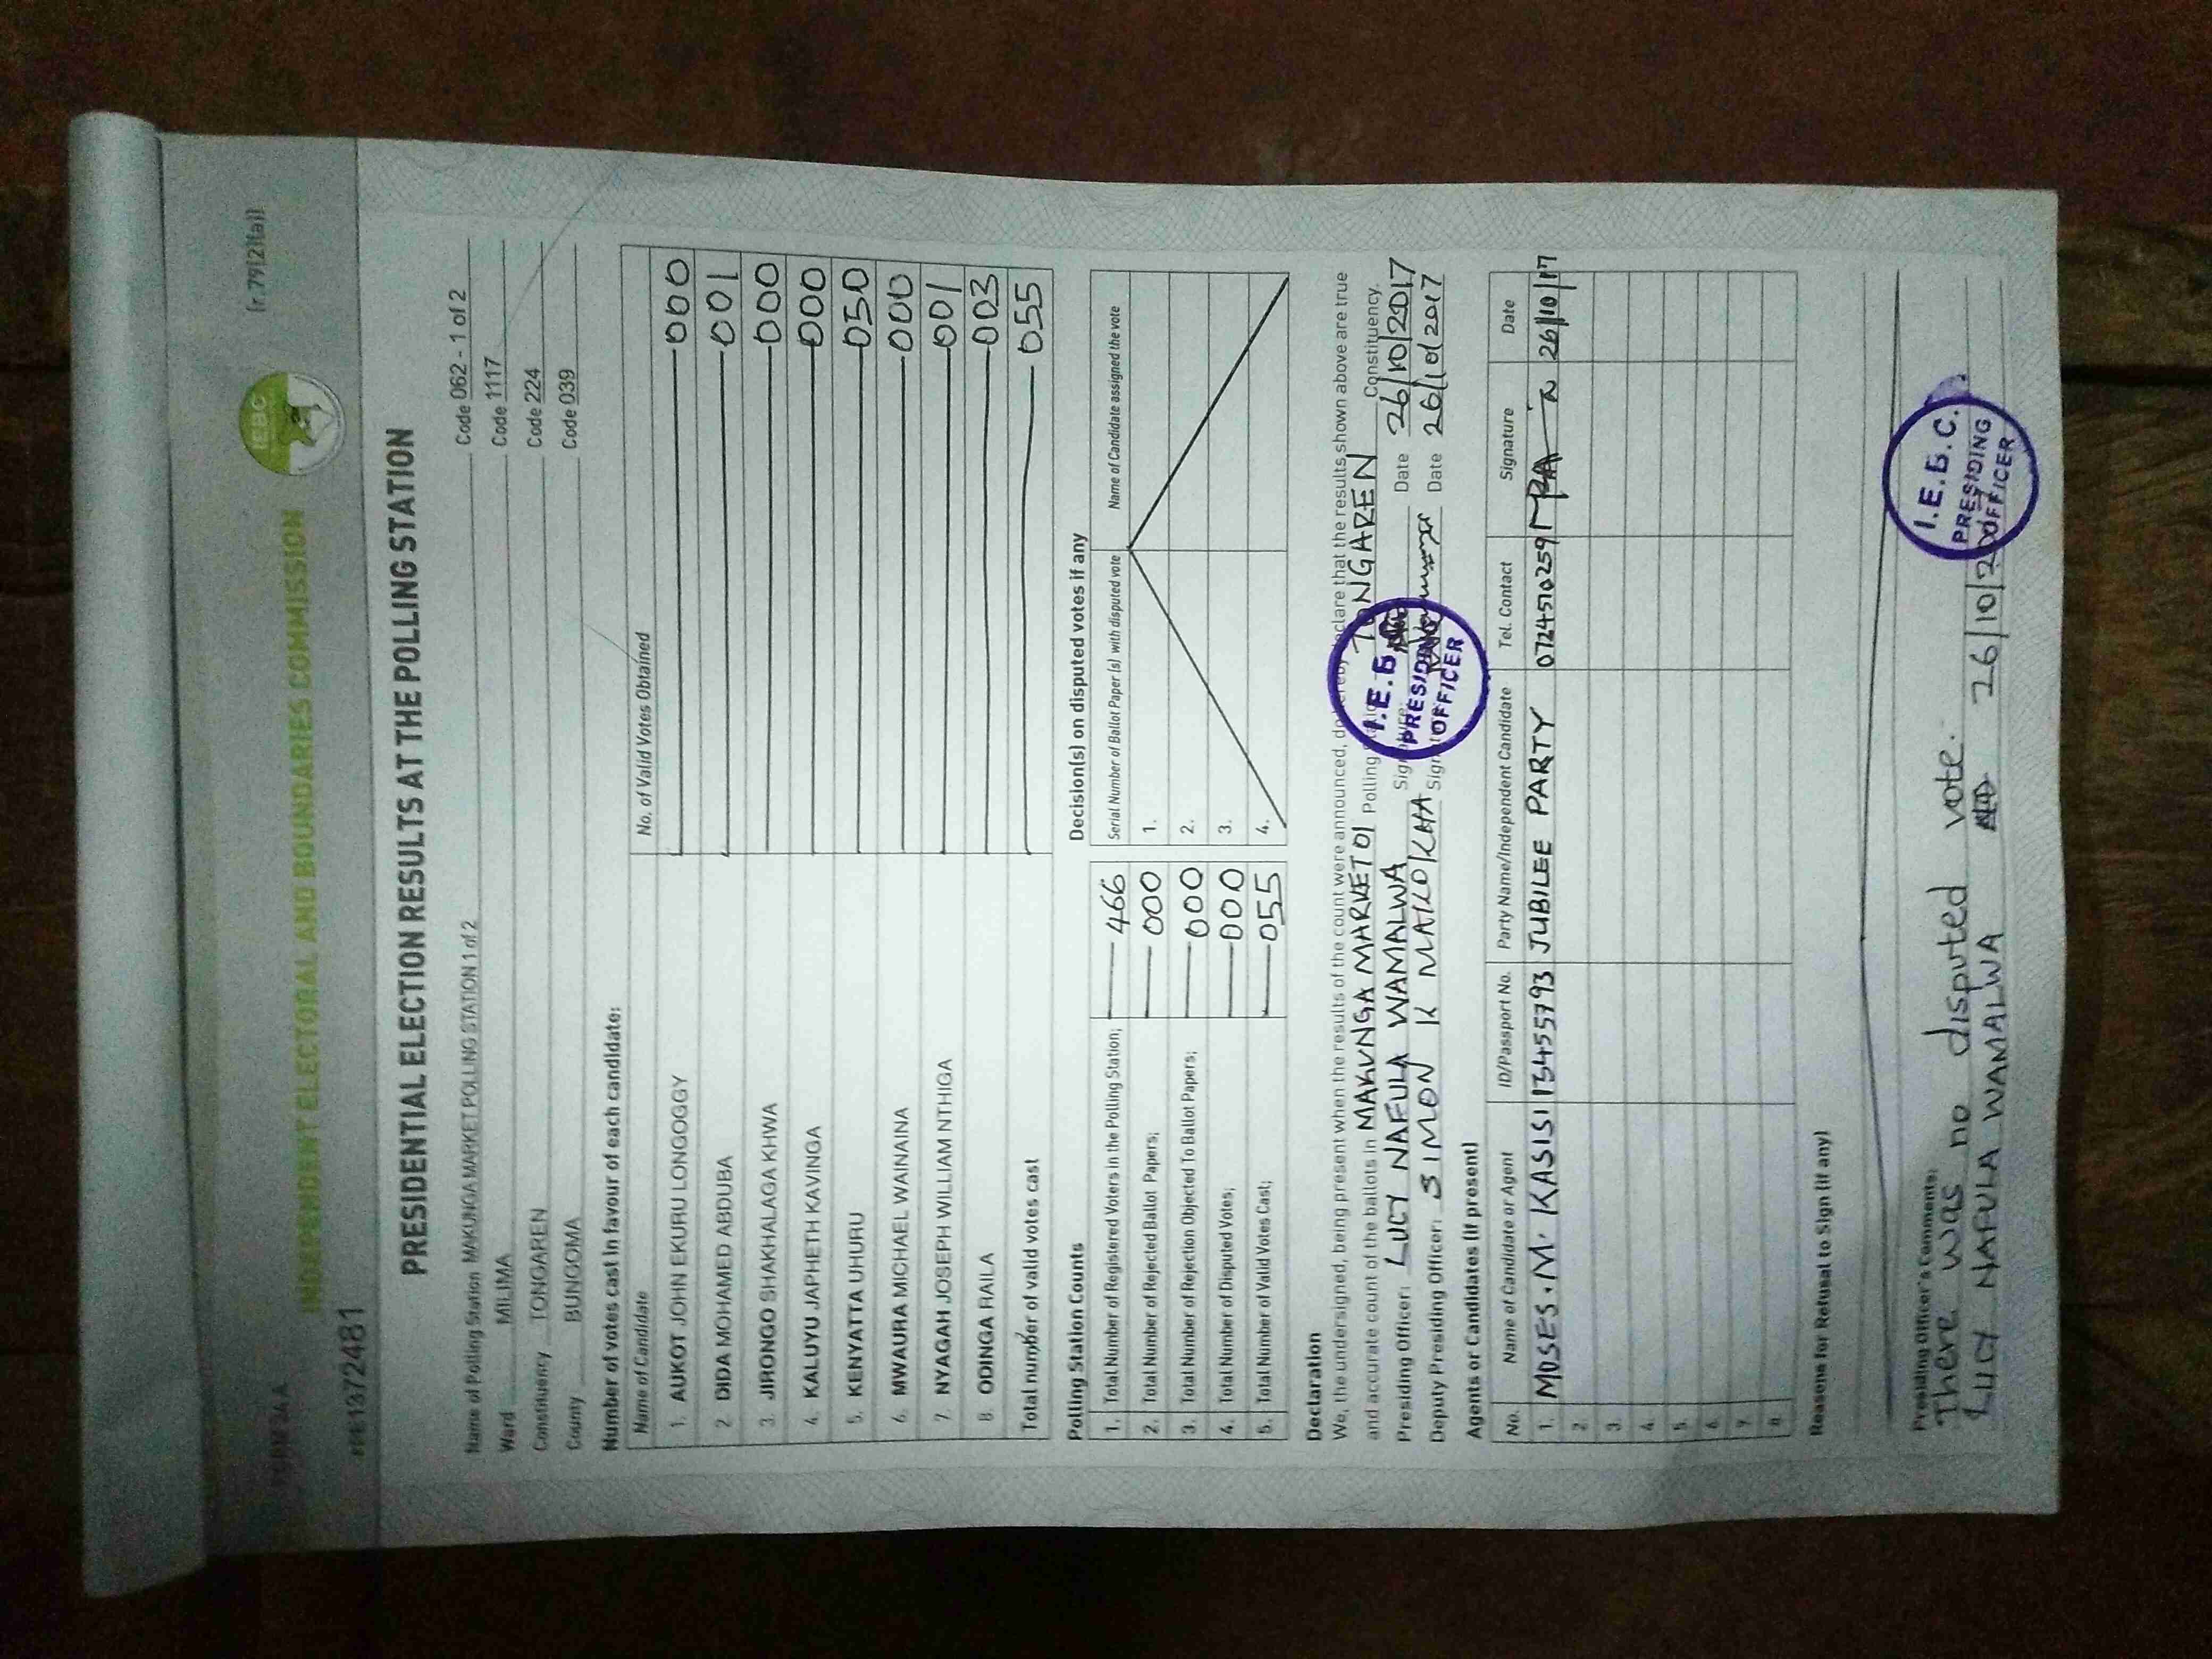 FORM 34A
(r. 79(2)(a))
1372481
IEBC
INDEPENDENT ELECTORAL AND BOUNDARIES COMMISSION
PRESIDENTIAL ELECTION RESULTS AT THE POLLING STATION
Name of Polling Station MAKUNGA MARKET POLLING STATION 1 of 2 Code 062 - 1 of 2
Ward MILIMA Code 1117
Constituency TONGAREN Code 224
County BUNGOMA Code 039
Number of votes cast in favour of each candidate:
Name of Candidate No. of Valid Votes Obtained
1. AUKOT JOHN EKURU LONGOGGY 000
2. DIDA MOHAMED ABDUBA 001
3. JIRONGO SHAKHALAGA KHWA 000
4. KALUYU JAPHETH KAVINGA 000
5. KENYATTA UHURU 050
6. MWAURA MICHAEL WAINAINA 000
7. NYAGAH JOSEPH WILLIAM NTHIGA 001
8. ODINGA RAILA 003
Total number of valid votes cast 055
Polling Station Counts
1. Total Number of Registered Voters in the Polling Station; 466
2. Total Number of Rejected Ballot Papers; 000
3. Total Number of Rejection Objected To Ballot Papers; 000
4. Total Number of Disputed Votes; 000
5. Total Number of Valid Votes Cast; 055
Decision(s) on disputed votes if any
Serial Number of Ballot Paper (s) with disputed vote Name of Candidate assigned the vote
1.
2.
3.
4.
Declaration
We, the undersigned, being present when the results of the count were announced, do hereby declare that the results shown above are true
and accurate count of the ballots in MAKUNGA MARKET 01 Polling TONGAREN Constituency.
Presiding Officer: LUCY NAFULA WAMALWA Date 26/10/2017
Deputy Presiding Officer: SIMON K MAKOKHA Date 26/10/2017
I.E.B.C.
PRESIDING
OFFICER
Agents or Candidates (if present)
No. Name of Candidate or Agent ID/Passport No. Party Name/Independent Candidate Tel. Contact Signature Date
1. MOSES. M. KASISI 13455793 JUBILEE PARTY 0724570259 26/10/17
2.
3.
4.
5.
6.
7.
8.
Reasons for Refusal to Sign (if any)
Presiding Officer's Comments:
There was no disputed vote.
LUCY NAFULA WAMALWA 26/10/2017
I.E.B.C.
PRESIDING
OFFICER